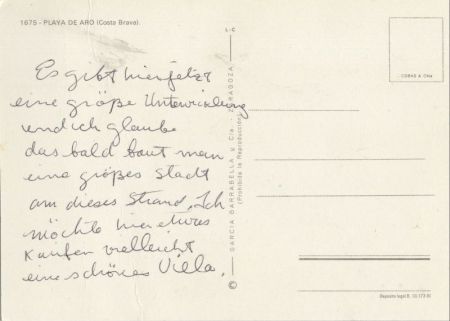 1675 - PLAYA DE ARO (Costa Brava).
L-C
Es gibt hier jetzt
eine große Unterwicklung
und ich glaube
das bald baut man
eine großes Stadt
am dieses Strand. Ich
möchte hier etwas
Kaufen vielleicht
eine schönes Villa.
GARCIA GARRABELLA y Cia. - ZARAGOZA
(Prohibida la Reproducción)
©
Depósito legal B.